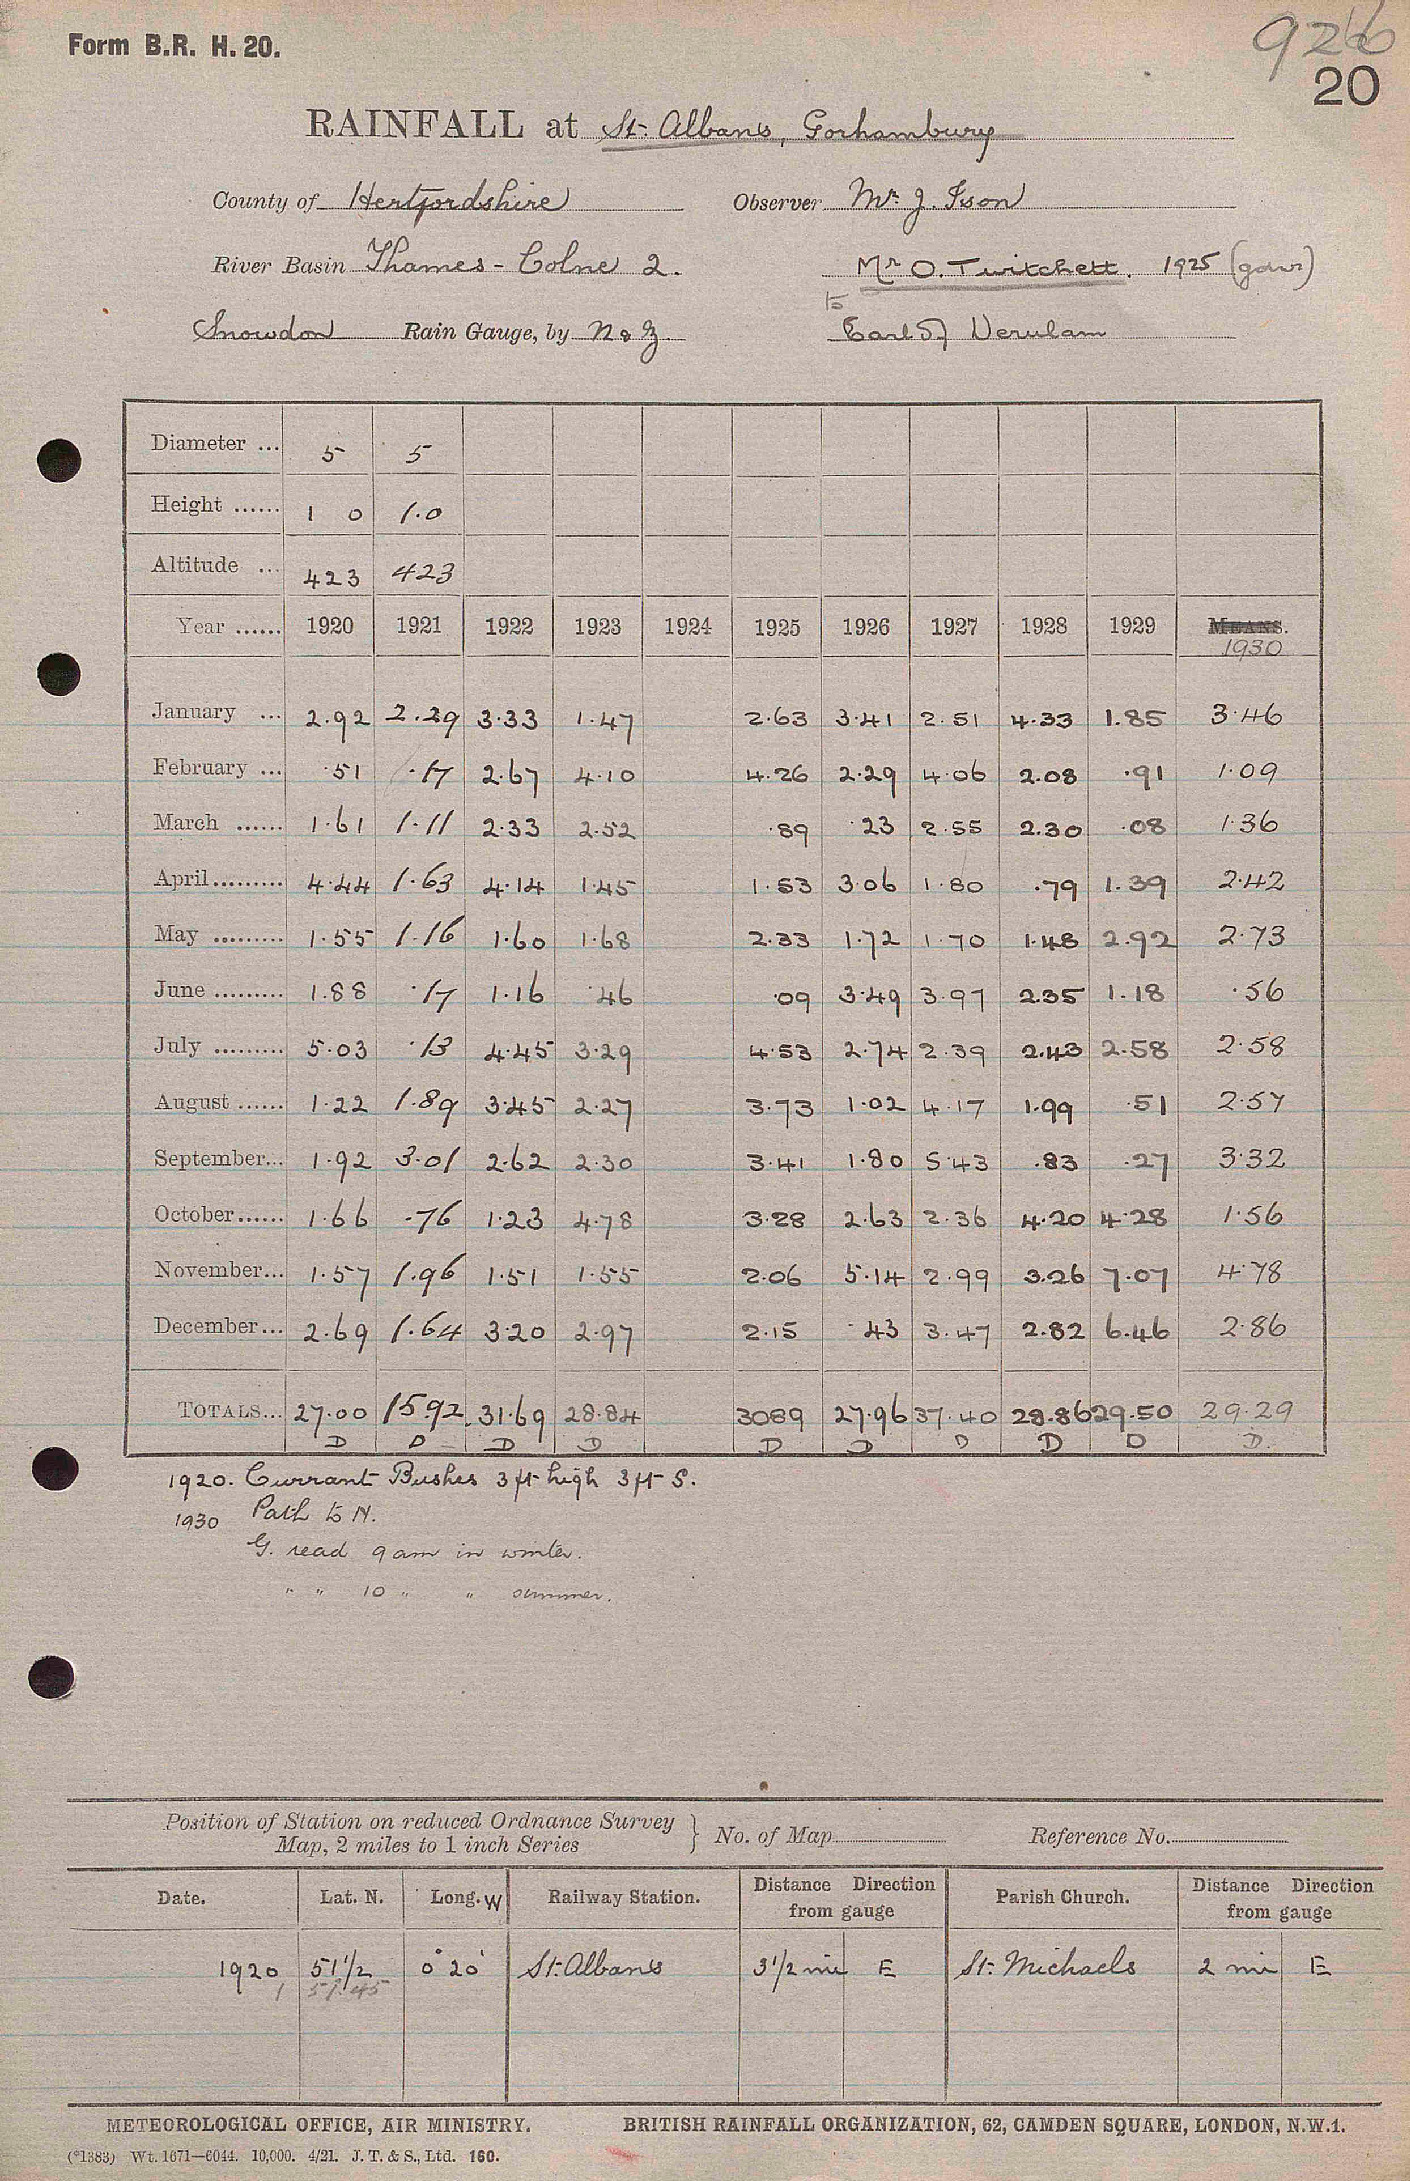 Form B.R. H. 20.
20
RAINFALL at St. Albans, Gorhambury
County of Hertfordshire Observer Mr. J. Ison
River Basin Thames - Colne 2. Mr O. Twitchett. 1925 (gdnr)
to
Snowdon Rain Gauge, by N & Z. Earl of Verulam
Diameter ... 5 5
Height ...... 1 0 1.0
Altitude ... 423 423
Year ...... 1920 1921 1922 1923 1924 1925 1926 1927 1928 1929 MEANS.
1930
January ... 2.92 2.29 3.33 1.47 2.63 3.41 2.51 4.33 1.85 3.46
February ... .51 .17 2.67 4.10 4.26 2.29 4.06 2.08 .91 1.09
March ...... 1.61 1.11 2.33 2.52 .89 .23 2.55 2.30 .08 1.36
April......... 4.44 1.63 4.14 1.45 1.53 3.06 1.80 .79 1.39 2.42
May ......... 1.55 1.16 1.60 1.68 2.33 1.72 1.70 1.48 2.92 2.73
June ......... 1.88 .17 1.16 .46 .09 3.49 3.97 2.35 1.18 .56
July ......... 5.03 .13 4.45 3.29 4.53 2.74 2.39 2.43 2.58 2.58
August ...... 1.22 1.89 3.45 2.27 3.73 1.02 4.17 1.99 .51 2.57
September... 1.92 3.01 2.62 2.30 3.41 1.80 5.43 .83 .27 3.32
October...... 1.66 .76 1.23 4.78 3.28 2.63 2.36 4.20 4.28 1.56
November... 1.57 1.96 1.51 1.55 2.06 5.14 2.99 3.26 7.07 4.78
December... 2.69 1.64 3.20 2.97 2.15 .43 3.47 2.82 6.46 2.86
TOTALS... 27.00 15.92 31.69 28.84 3089 27.96 37.40 28.86 29.50 29.29
D D D D D D D D D D
1920. Currant Bushes 3 ft high 3 ft S.
1930 Path to N.
G. read 9 am in winter.
" " 10 " " summer.
Position of Station on reduced Ordnance Survey
Map, 2 miles to 1 inch Series } No. of Map Reference No.
Date. Lat. N. Long. W Railway Station. Distance Direction from gauge Parish Church. Distance Direction from gauge
1920 51 1/2 0° 20' St. Albans 3 1/2 mi E St. Michaels 2 mi E
1 51.45
METEOROLOGICAL OFFICE, AIR MINISTRY. BRITISH RAINFALL ORGANIZATION, 62, CAMDEN SQUARE, LONDON, N.W.1.
(*1383) Wt. 1671—6044. 10,000. 4/21. J. T. & S., Ltd. 160.